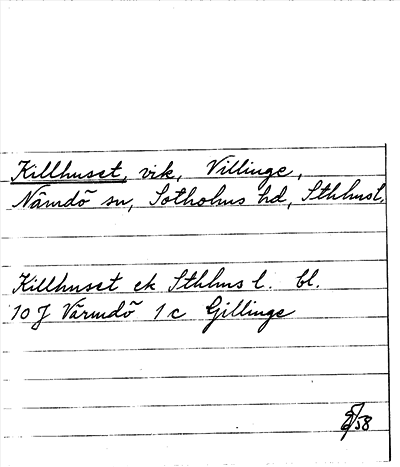 Killhuset, vik, Villinge,
Nämdö sn, Sotholms hd, Sthlmsl.
Killhuset ek Sthlms l. bl.
10 J Värmdö 1 c Gillinge
/58